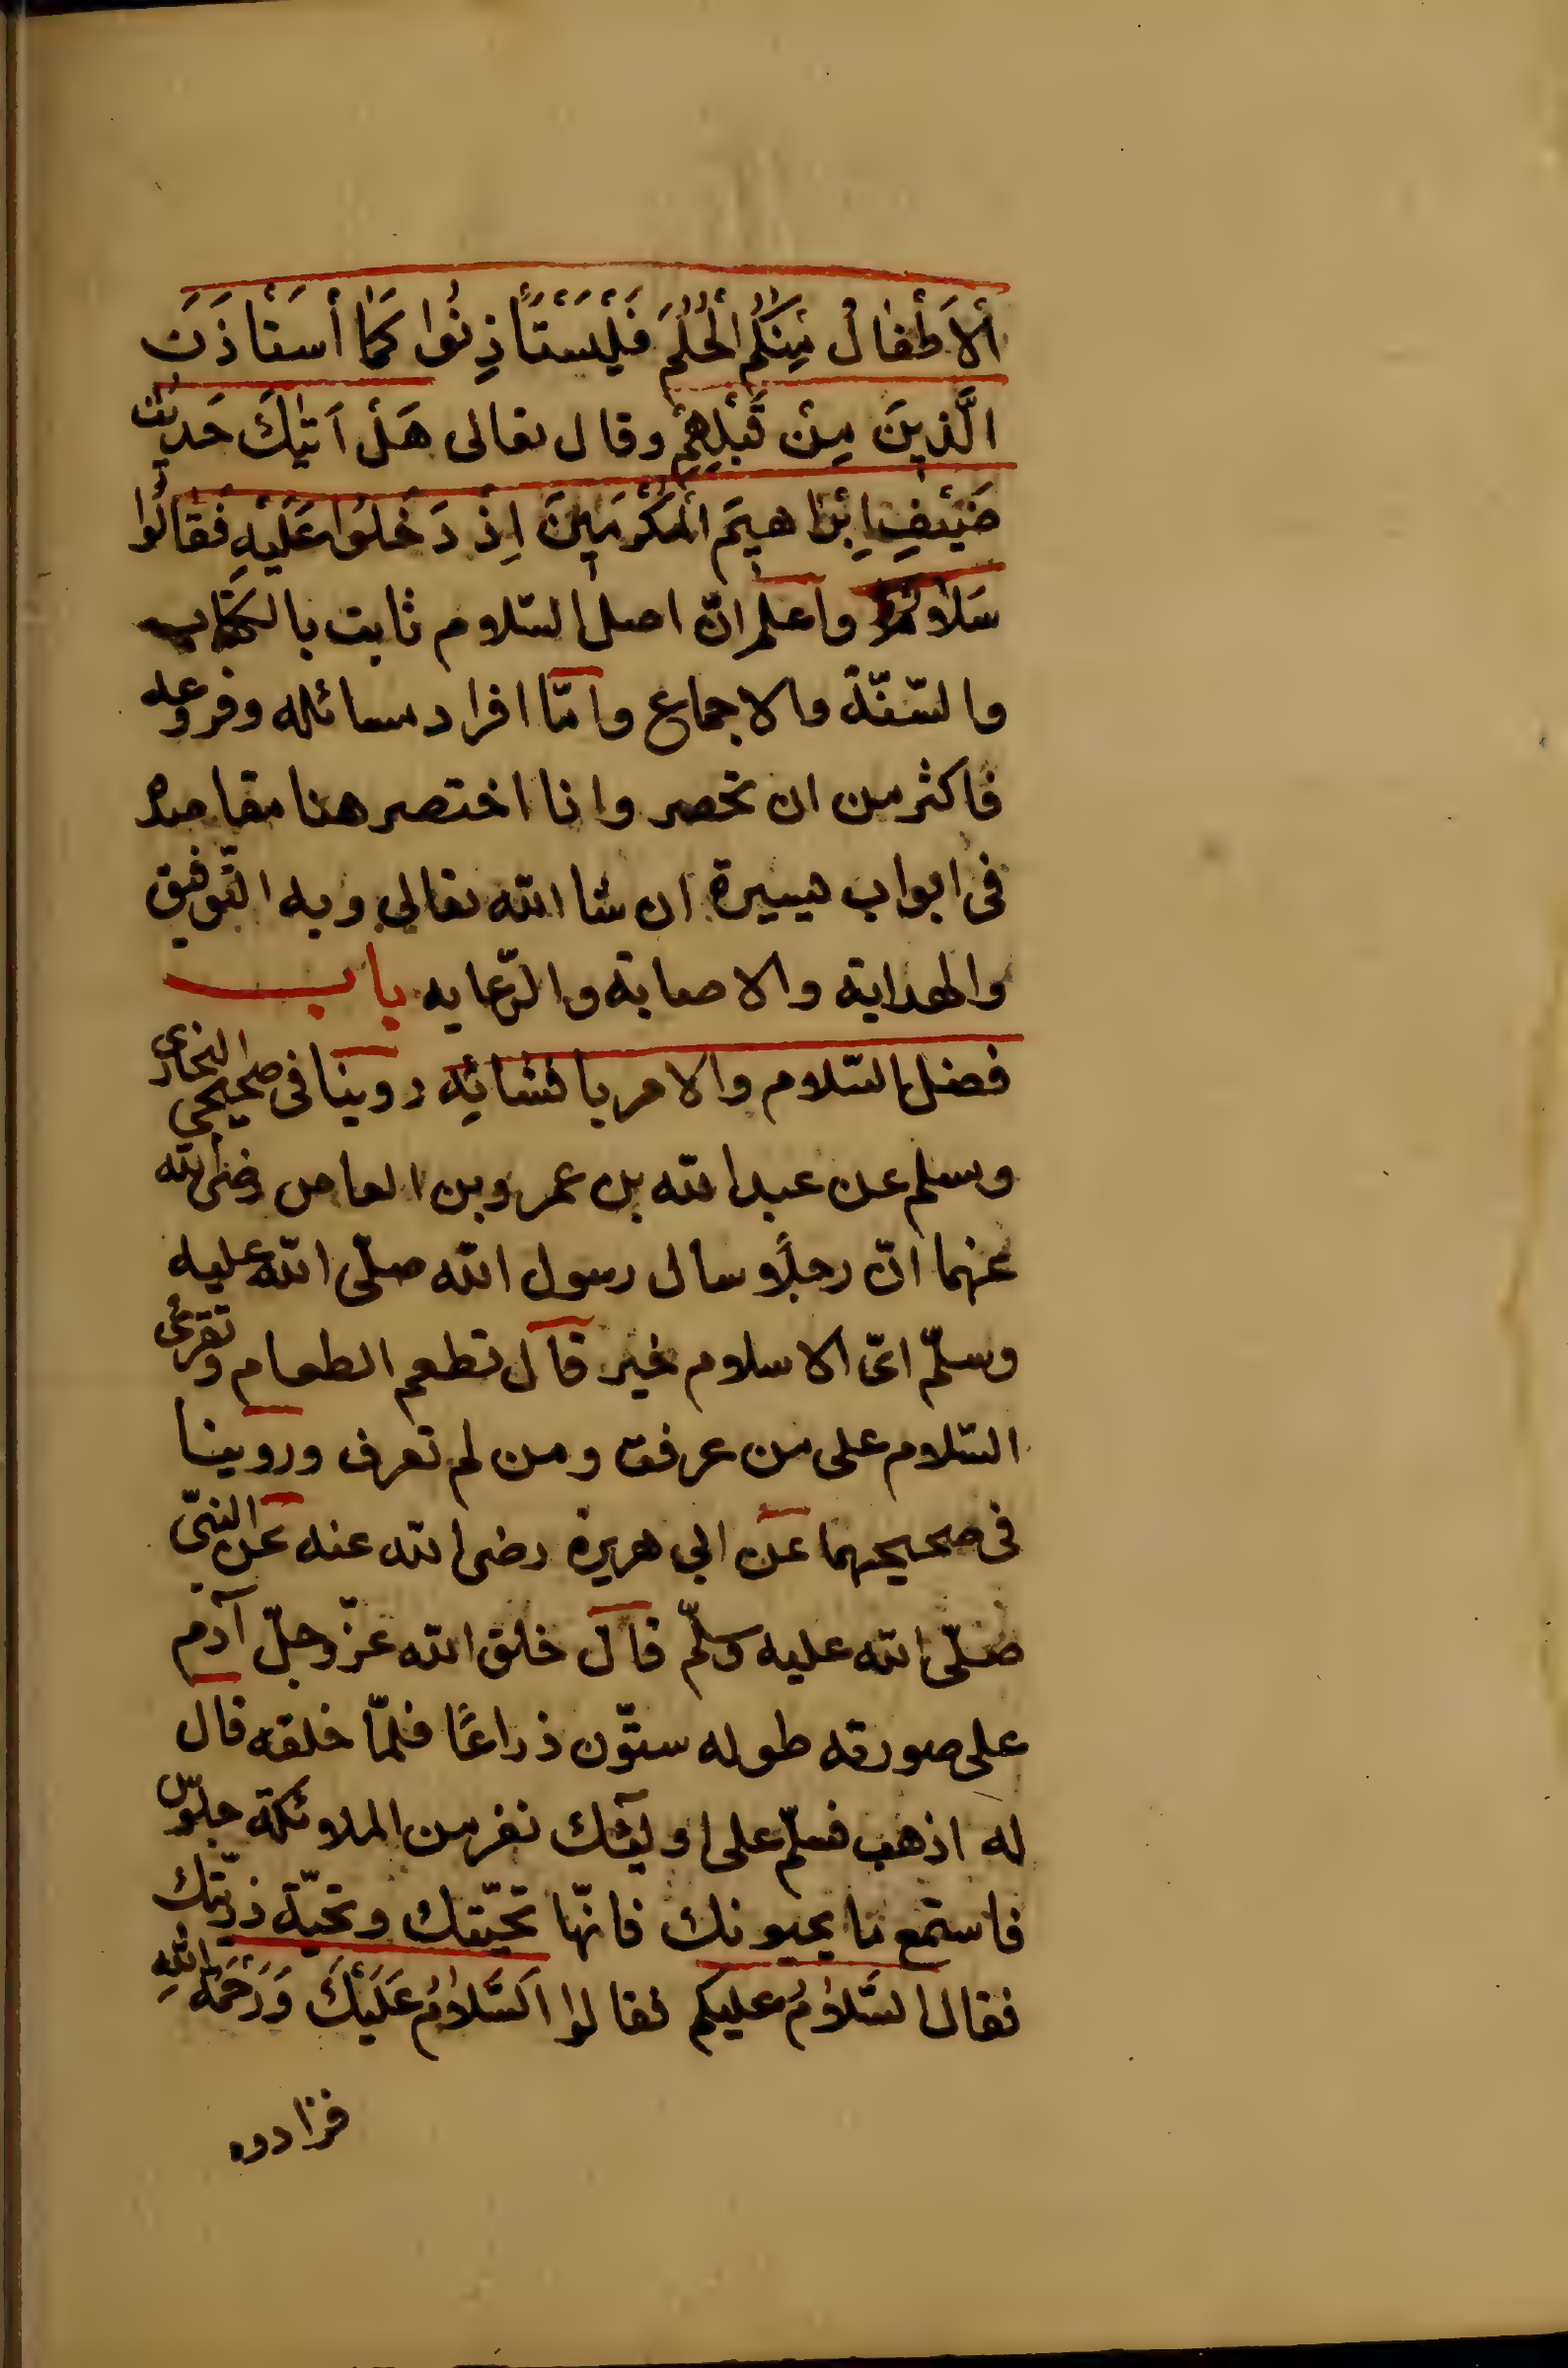 ألاَطْفالُ مِنكُم الْحُلُمَ فَلْيَسْتَأْذِنُوا كَمَا أسْتَاذَنَ
الَّذينَ مِنْ قَبْلِهِمْ وقال تعالى هَلْ اَتٰيكَ حَديثُ
ضَيْفِ اِبْراهيمَ الْمُكْرَمينَ اِذْ دَخَلوُا عَلَيْهِ فَقٰالُوا
سَلاٰمًا واَعلم انّ اصل السّلام ثابت بالكتاب
والسّنّة والاجماع وامّا افراد مسائله وفروعه
فاكثر من ان تحصر وانا اختصر هنا مقاصده
فى ابواب يسيرة ان شا الله تعالى وبه التّوفيق
والهداية والاصابة والرّعايه باب
فضل السّلام والامر بافشائِه روينا فى صحيحي البخارى
ومسلم عن عبد الله بن عمرو بن العاص رضى الله
عنهما انّ رجلًا سال رسول الله صلّى الله عليه
وسلّم اىّ الاسلام خير قال تطعم الطعام وتقرئ
السّلام على من عرفت ومن لم تعرف وروينا
فى صحيحيهما عن ابي هريرة رضى الله عنه عن النبيّ
صلّى الله عليه وسلّم قال خلق الله عزّ وجلّ آدم
على صورته طوله ستّون ذراعًا فلمّا خلقه قال
له اذهب فسلّم على اولئك نفر من الملائكة جلوس
فاستمع ما يحيونك فانّها تحيّتك وتحيّة ذرّيّتك
فقال السَّلاٰمُ عليكم فقالوا اَلسَّلاٰمُ عَلَيْكَ وَرَحْمَةُ اللهِ
فزادوه